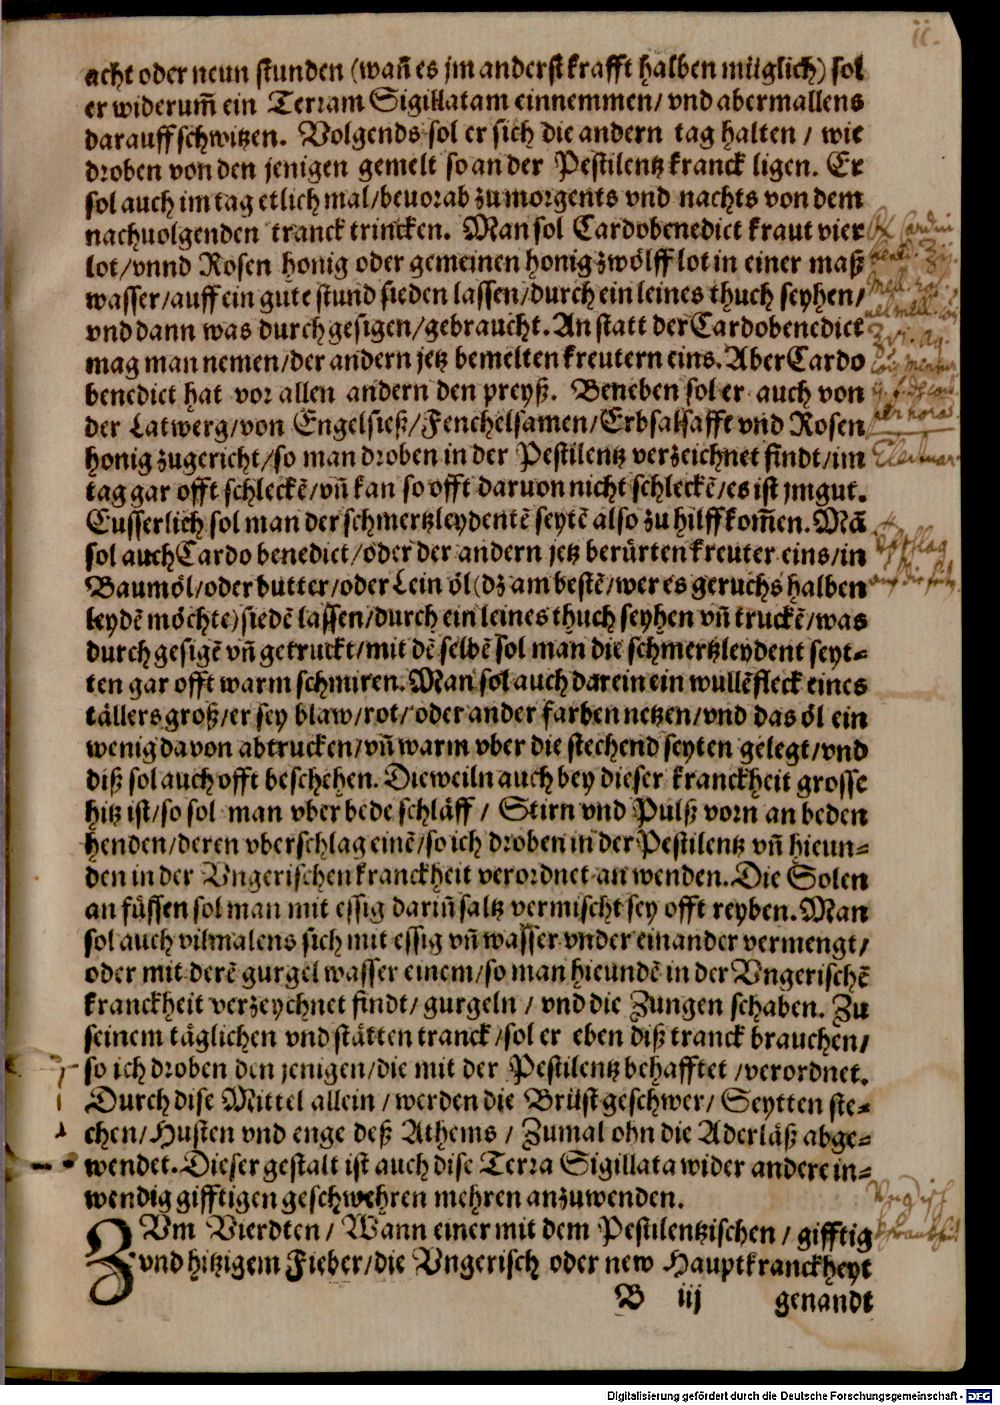 ii.
acht oder neun stunden (wañ es jm anderst krafft halben müglich) sol
er widerum̃ ein Terram Sigillatam einnemmen/ vnd abermallens
darauff schwitzen. Volgends sol er sich die andern tag halten / wie
droben von den jenigen gemelt so an der Pestilentz kranck ligen. Er
sol auch im tag etlich mal/beuorab zu morgents vnd nachts von dem
nachuolgenden tranck trincken. Man sol Cardobenedict kraut vier
lot/vnnd Rosen honig oder gemeinen honig zwölff lot in einer maß
wasser/auff ein gute stund sieden lassen/durch ein leines thuch seyhen/
vnd dann was durchgesigen/gebraucht. An statt der Cardobenedict
mag man nemen/der andern jetz bemelten kreutern eins. Aber Cardo
benedict hat vor allen andern den preyß. Beneben sol er auch von
der Latwerg/von Engelsieß/Fenchelsamen/Erbsalsafft vnd Rosen
honig zugericht/so man droben in der Pestilentz verzeichnet findt/im
tag gar offt schleckẽ/vñ kan so offt daruon nicht schleckẽ/es ist jm gut.
Eusserlich sol man der schmertzleydentẽ seytẽ also zu hilff kom̃en. Mã
sol auch Cardo benedict/oder der andern jetz berürten kreuter eins/in
Baumöl/oder butter/oder Lein öl(dz am bestẽ/wer es geruchs halben
leydẽ möchte)siedẽ lassen/durch ein leines thuch seyhen vñ truckẽ/was
durchgesigẽ vñ getruckt/mit dẽ selbẽ sol man die schmertzleydent seyt-
ten gar offt warm schmiren. Man sol auch darein ein wullẽ fleck eines
tällers groß/er sey blaw/rot/oder ander farben netzen/vnd das öl ein
wenig davon abtrucken/vñ warm vber die stechend seyten gelegt/vnd
diß sol auch offt beschehen. Dieweiln auch bey dieser kranckheit grosse
hitz ist/so sol man vber bede schläff / Stirn vnd Pulß vorn an beden
henden/deren vberschlag einẽ/so ich droben in der Pestilentz vñ hieun-
den in der Vngerischen kranckheit verordnet an wenden. Die Solen
an füssen sol man mit essig dariñ saltz vermischt sey offt reyben. Man
sol auch vilmalens sich mit essig vñ wasser vnder einander vermengt/
oder mit derẽ gurgel wasser einem/so man hieundẽ in der Vngerischẽ
kranckheit verzeychnet findt/ gurgeln / vnd die Zungen schaben. Zu
seinem täglichen vnd stätten tranck/sol er eben diß tranck brauchen/
so ich droben den jenigen/die mit der Pestilentz behafftet /verordnet.
Durch dise Mittel allein / werden die Brüstgeschwer/ Seytten ste-
chen/Husten vnd enge deß Athems / Zumal ohn die Aderläß abge-
wendet. Dieser gestalt ist auch dise Terra Sigillata wider andere in-
wendig gifftigen geschwehren mehren anzuwenden.
ZVm Vierdten/ Wann einer mit dem Pestilentzischen / gifftig
vnd hitzigem Fieber/die Vngerisch oder new Hauptkranckheyt
B iij genandt
Digitalisierung gefördert durch die Deutsche Forschungsgemeinschaft - DFG